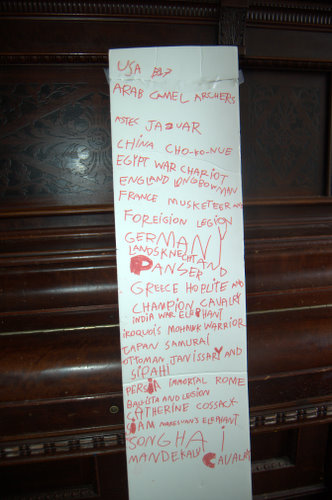 USA B17
ARAB CAMEL ARCHERS
ASTEC JAGUAR
CHINA CHO-KO-NUE
EGYPT WAR CHARIOT
ENGLAND LONGBOWMAN
FRANCE MUSKETEER AND
FOREIGION LEGION
GERMANY
LANDSKNECHT AND
PANSER
GREECE HOPLITE AND
CHAMPION CAVALRY
INDIA WAR ELEPHANT
IROQUOIS MOHAWK WARRIOR
JAPAN SAMURAI
OTTOMAN JANISSARY AND
SIPAHI
PERSIA IMMORTAL ROME
BALLISTA AND LEGION
CATHERINE COSSACK
SIAM NARESVAN'S ELEPHANT
SONGHAI
MANDEKALU CAVALRY